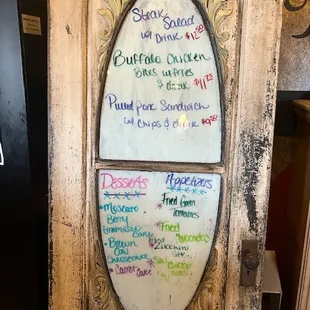 Steak Salad
w/ Drink $12.50
Buffalo Chicken
Bites w/ fries
& drink $11.25
Pulled pork Sandwich
w/ chips & drink
Desserts
Moscato
Berry
Cake
Brown
Cow
Cheesecake
Carrot Cake
Appetizers
Fried Green
Tomatoes
Fried
Avocados
Zucchini